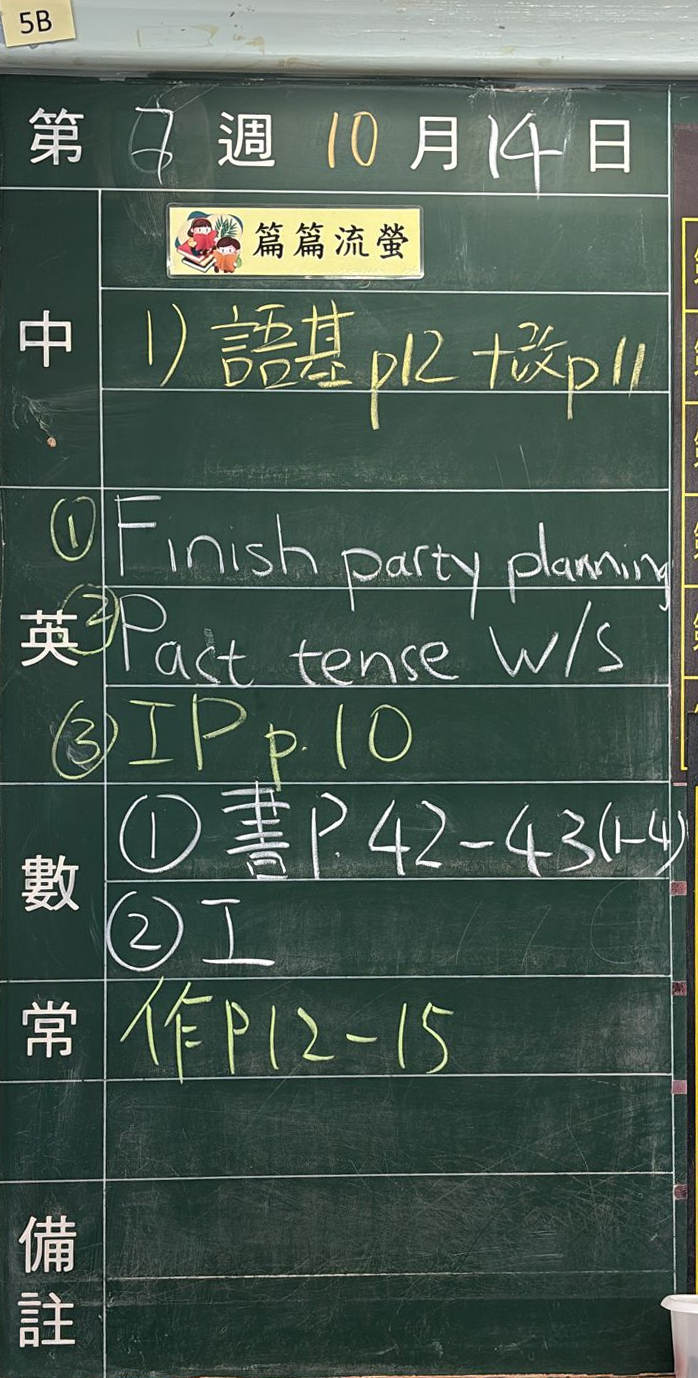 5B
第 7 週 10 月 14 日
篇篇流螢
中
1) 語基 p12 + 改 p11
英
① Finish party planning
② Past tense W/S
③ IP p.10
數
① 書 P. 42-43 (1-4)
② 工
常
作 P12-15
備註